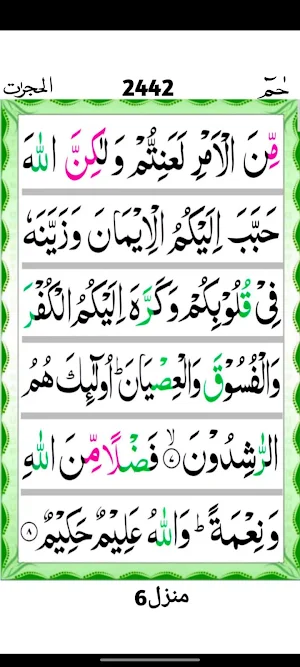 الحجرات 2442 حٰمٓ
مِّنَ الْاَمْرِ لَعَنِتُّمْ وَلٰكِنَّ اللّٰهَ
حَبَّبَ اِلَيْكُمُ الْاِيْمَانَ وَزَيَّنَهٗ
فِيْ قُلُوْبِكُمْ وَكَرَّهَ اِلَيْكُمُ الْكُفْرَ
وَالْفُسُوْقَ وَالْعِصْيَانَ ؕ اُولٰٓئِكَ هُمُ
الرّٰشِدُوْنَ ۙ ۷ فَضْلًا مِّنَ اللّٰهِ
وَنِعْمَةً ؕ وَاللّٰهُ عَلِيْمٌ حَكِيْمٌ ۸
منزل 6